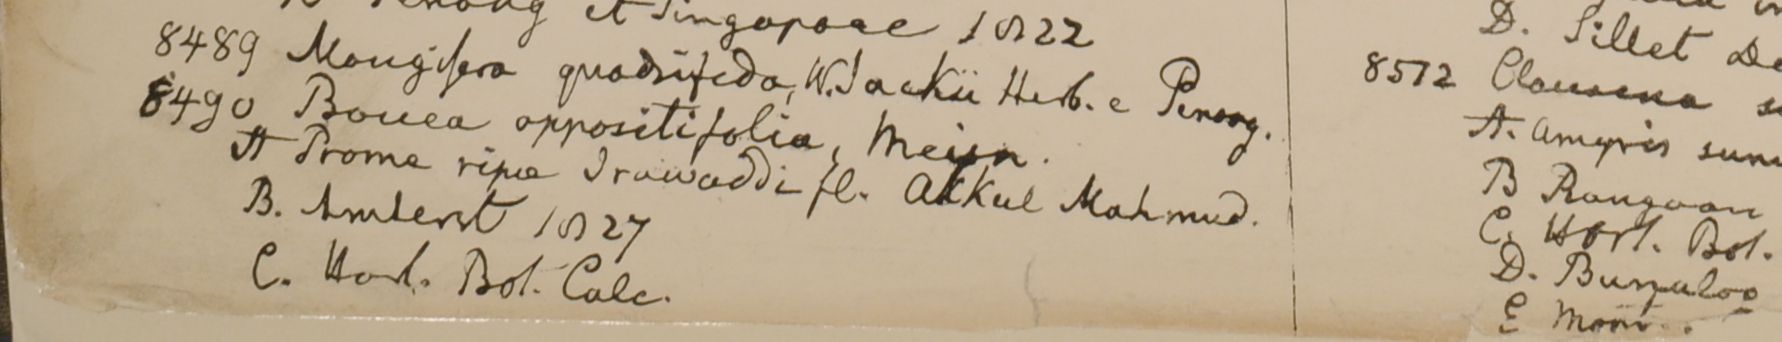 Penang et Singapore 1822
8489 Mangifera quadrifida, W. Jackii Herb. e Penang.
8490 Bouea oppositifolia, Meisn.
A Prome ripae Irawaddi fl. Akkul Mahmud.
B. Amherst 1827
C. Hort. Bot. Calc.
D. Sillet De
8512 Clausena
A. Amyris
B Rangoon
C. Hort. Bot.
D.
E